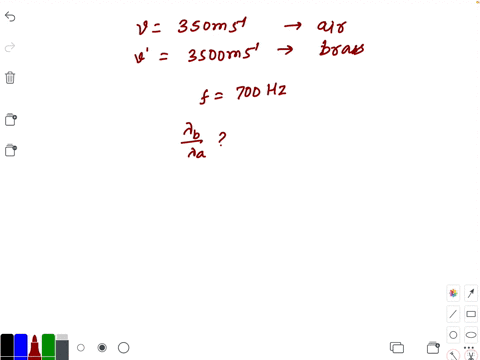 v = 350 ms⁻¹ → air
v' = 3500 ms⁻¹ → brass
f = 700 Hz
λb/λa ?